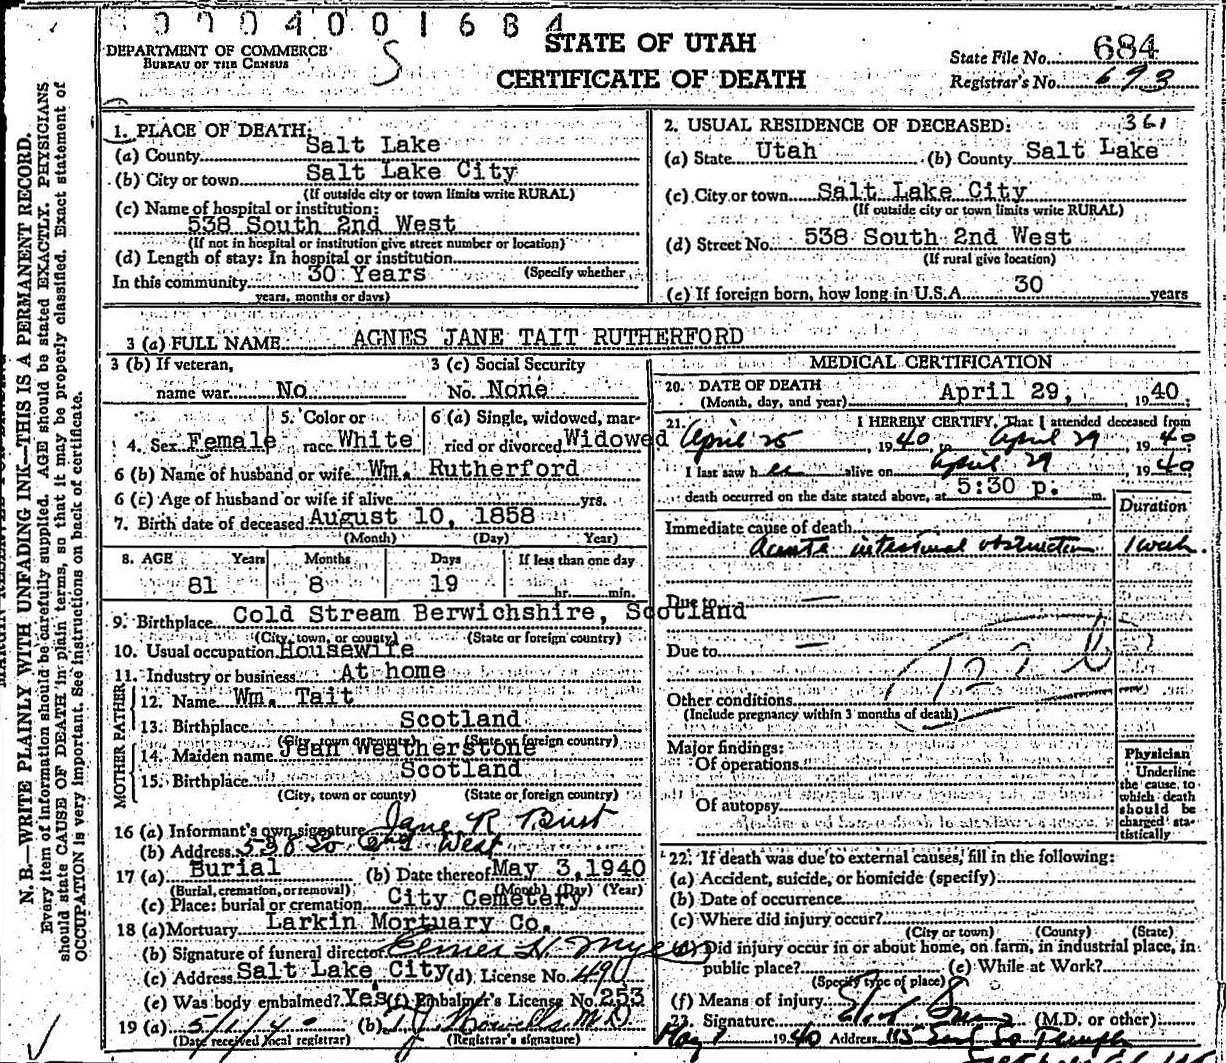 0004001684
DEPARTMENT OF COMMERCE
BUREAU OF THE CENSUS
S
STATE OF UTAH
CERTIFICATE OF DEATH
State File No. 684
Registrar's No. 693
N. B.—WRITE PLAINLY WITH UNFADING INK—THIS IS A PERMANENT RECORD.
Every item of information should be carefully supplied. AGE should be stated EXACTLY. PHYSICIANS
should state CAUSE OF DEATH in plain terms, so that it may be properly classified. Exact statement of
OCCUPATION is very important. See instructions on back of certificate.
1. PLACE OF DEATH:
(a) County Salt Lake
(b) City or town Salt Lake City
(If outside city or town limits write RURAL)
(c) Name of hospital or institution:
538 South 2nd West
(If not in hospital or institution give street number or location)
(d) Length of stay: In hospital or institution
(Specify whether
In this community 30 Years
years, months or days)
2. USUAL RESIDENCE OF DECEASED: 361
(a) State Utah (b) County Salt Lake
(c) City or town Salt Lake City
(If outside city or town limits write RURAL)
(d) Street No. 538 South 2nd West
(If rural give location)
(e) If foreign born, how long in U.S.A. 30 years
3 (a) FULL NAME AGNES JANE TAIT RUTHERFORD
3 (b) If veteran, 3 (c) Social Security
name war No No. None
4. Sex Female 5. Color or race White 6 (a) Single, widowed, married or divorced Widowed
6 (b) Name of husband or wife Wm. Rutherford
6 (c) Age of husband or wife if alive yrs.
7. Birth date of deceased August 10, 1858
(Month) (Day) Year)
8. AGE Years Months Days If less than one day
81 8 19 hr. min.
9. Birthplace Cold Stream Berwichshire, Scotland
(City, town, or county) (State or foreign country)
10. Usual occupation Housewife
11. Industry or business At home
FATHER
12. Name Wm. Tait
13. Birthplace Scotland
(City, town or county) (State or foreign country)
MOTHER
14. Maiden name Jean Weatherstone
15. Birthplace Scotland
(City, town or county) (State or foreign country)
16 (a) Informant's own signature Jane R
(b) Address 538 So 2nd West
17 (a) Burial (b) Date thereof May 3, 1940
(Burial, cremation, or removal) (Month) (Day) (Year)
(c) Place: burial or cremation City Cemetery
18 (a) Mortuary Larkin Mortuary Co.
(b) Signature of funeral director Elmer H. Myers
(c) Address Salt Lake City (d) License No. 490
(e) Was body embalmed? Yes (f) Embalmer's License No. 253
19 (a) 5/1/40 (b) T.J. Howells M.D.
(Date received local registrar) (Registrar's signature)
MEDICAL CERTIFICATION
20. DATE OF DEATH
(Month, day, and year) April 29, 1940
21. I HEREBY CERTIFY, That I attended deceased from
April 25, 1940 to April 29, 1940
I last saw her alive on April 29, 1940
death occurred on the date stated above, at 5:30 p. m.
Duration
Immediate cause of death
Acute intestinal obstruction 1 week.
Due to —
Due to —
122 b
Other conditions
(Include pregnancy within 3 months of death)
Major findings:
Of operations
Of autopsy
Physician
Underline
the cause, to
which death
should be
charged sta-
tistically
22. If death was due to external causes, fill in the following:
(a) Accident, suicide, or homicide (specify)
(b) Date of occurrence
(c) Where did injury occur?
(City or town) (County) (State)
Did injury occur in or about home, on farm, in industrial place, in
public place? (e) While at Work?
(Specify type of place)
(f) Means of injury
23. Signature (M.D. or other)
May 1 1940 Address 115 East So Temple